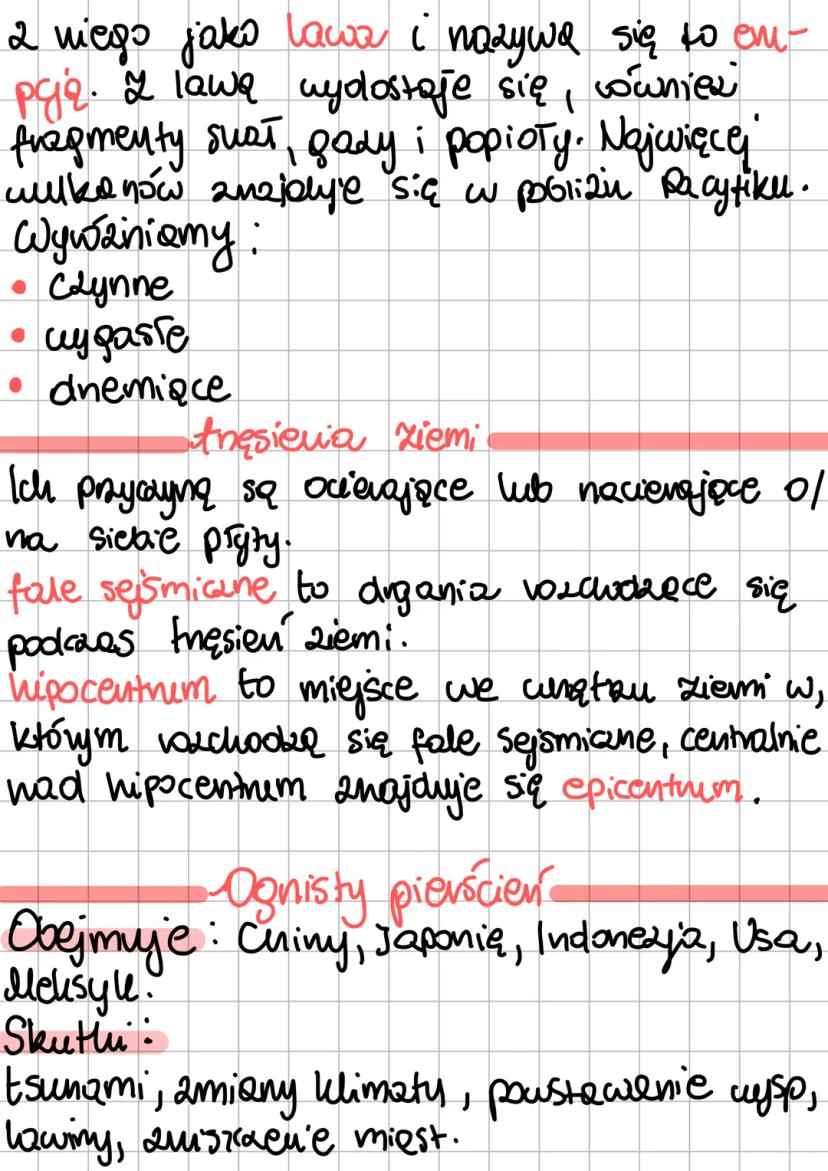 z niego jako lawa i nazywa się to eru-
pcją. Z lawą wydostaje się, również
fragmenty skał, gazy i popioły. Najwięcej
wulkanów znajduje się w pobliżu Pacyfiku.
Wyróżniamy:
• czynne
• wygasłe
• drzemiące
trzęsienia ziemi
Ich przyczyną są ocierające lub nacierające o/
na siebie płyty.
fale sejsmiczne to drgania rozchodzące się
podczas trzęsień ziemi.
hipocentrum to miejsce we wnętrzu ziemi w,
którym rozchodzą się fale sejsmiczne, centralnie
nad hipocentrum znajduje się epicentrum.
Ognisty pierścień
Obejmuje: Chiny, Japonię, Indonezja, Usa,
Meksyk.
Skutki:
tsunami, zmiany klimatu, powstawanie wysp,
lawiny, zniszczenie miast.